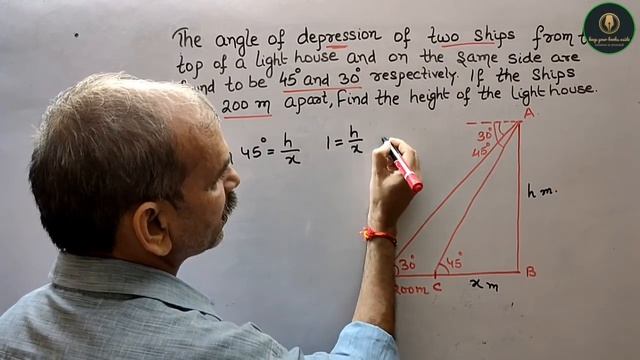 The angle of depression of two ships from
top of a light house and on the same side are
to be 45° and 30° respectively. If the ships
200 m apart, Find the height of the light house.
45° = h/x 1 = h/x
A
30°
45°
h m.
30° 45°
200m C x m B